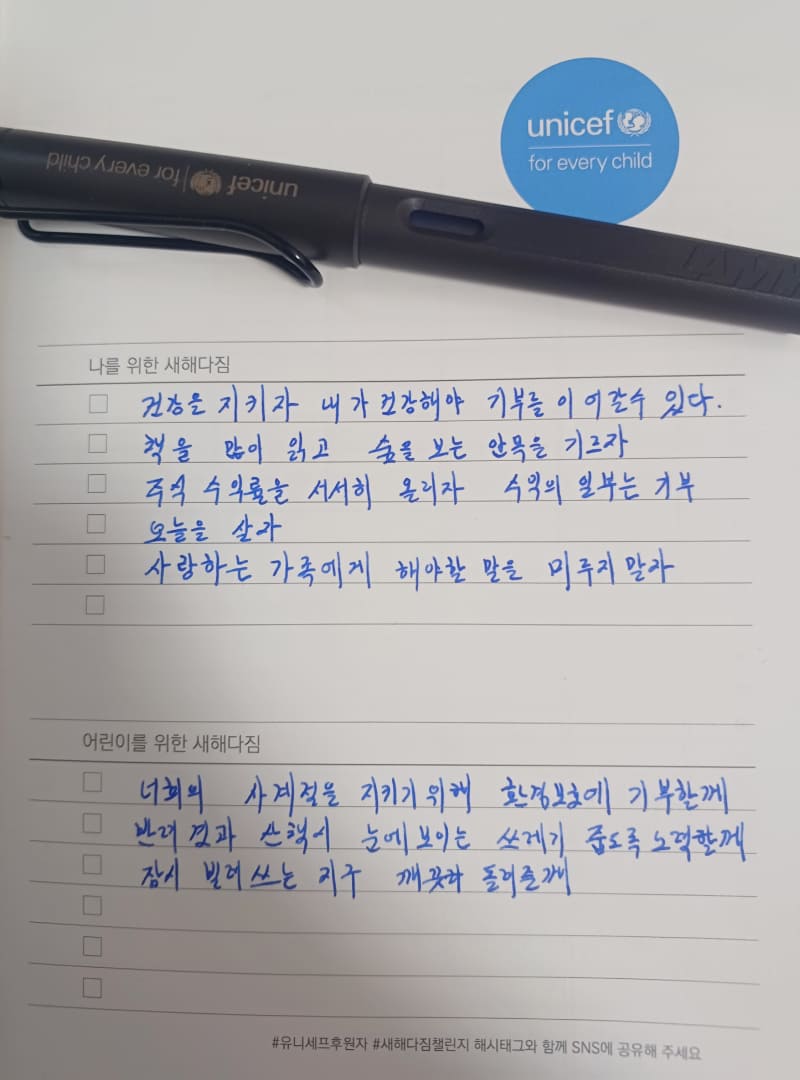 unicef
for every child
unicef for every child
LAMY
나를 위한 새해다짐
건강을 지키자 내가 건강해야 기부를 이어갈수 있다.
책을 많이 읽고 숲을 보는 안목을 기르자
주식 수익률을 서서히 올리자 수익의 일부는 기부
오늘을 살자
사랑하는 가족에게 해야할 말을 미루지말자
어린이를 위한 새해다짐
너희의 사계절을 지키기위해 환경보호에 기부할께
반려견과 산책시 눈에보이는 쓰레기 줍도록 노력할께
잠시 빌려쓰는 지구 깨끗히 돌려줄께
#유니세프후원자 #새해다짐챌린지 해시태그와 함께 SNS에 공유해 주세요